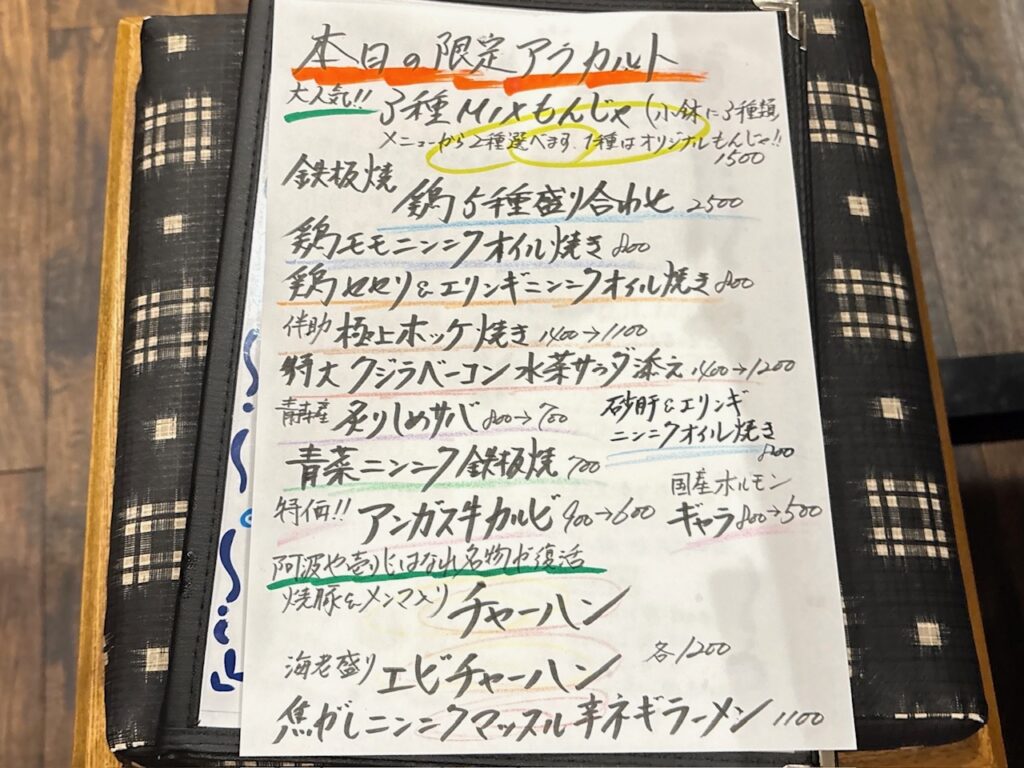 本日の限定アラカルト
大人気!! 3種Mixもんじゃ(小鉢に3種類
メニューから2種選べます、1種はオリジナルもんじゃ!!
1500
鉄板焼
鶏5種盛り合わせ 2500
鶏モモニンニクオイル焼き 800
鶏セセリ&エリンギニンニクオイル焼き 800
伴助 極上ホッケ焼き 1400→1100
特大 クジラベーコン 水菜サラダ添え 1400→1200
青森産 炙りしめサバ 800→700
砂肝&エリンギ
ニンニクオイル焼き
800
青菜ニンニク鉄板焼 700
特価!! アンガス牛カルビ 900→600
国産ホルモン
ギャラ 800→500
阿波や壱兆はなれ名物が復活
焼豚&メンマ入り チャーハン
海老盛り エビチャーハン 各1200
焦がしニンニクマッスル辛ネギラーメン 1100